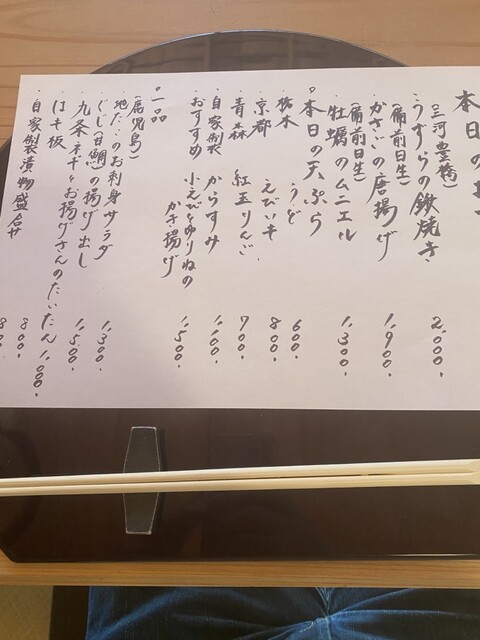 本日の
(三河豊橋)
・うずらの鍬焼き 2,000.
(備前日生)
・かさごの唐揚げ 1,900.
(備前日生)
・牡蠣のムニエル 1,300.
○本日の天ぷら
・栃木 うど 600.
・京都 えびいも 800.
・青森 紅玉りんご 700.
・自家製 からすみ 1,100.
・おすすめ 小えびとゆりねの
かき揚げ 1,500.
○一品
(鹿児島)
地だこのお刺身サラダ 1,300.
・ぐじ(甘鯛)の揚げ出し 1,500.
・九条ネギとお揚げさんのたいたん 1,000.
・はも板 800.
・自家製漬物盛合せ